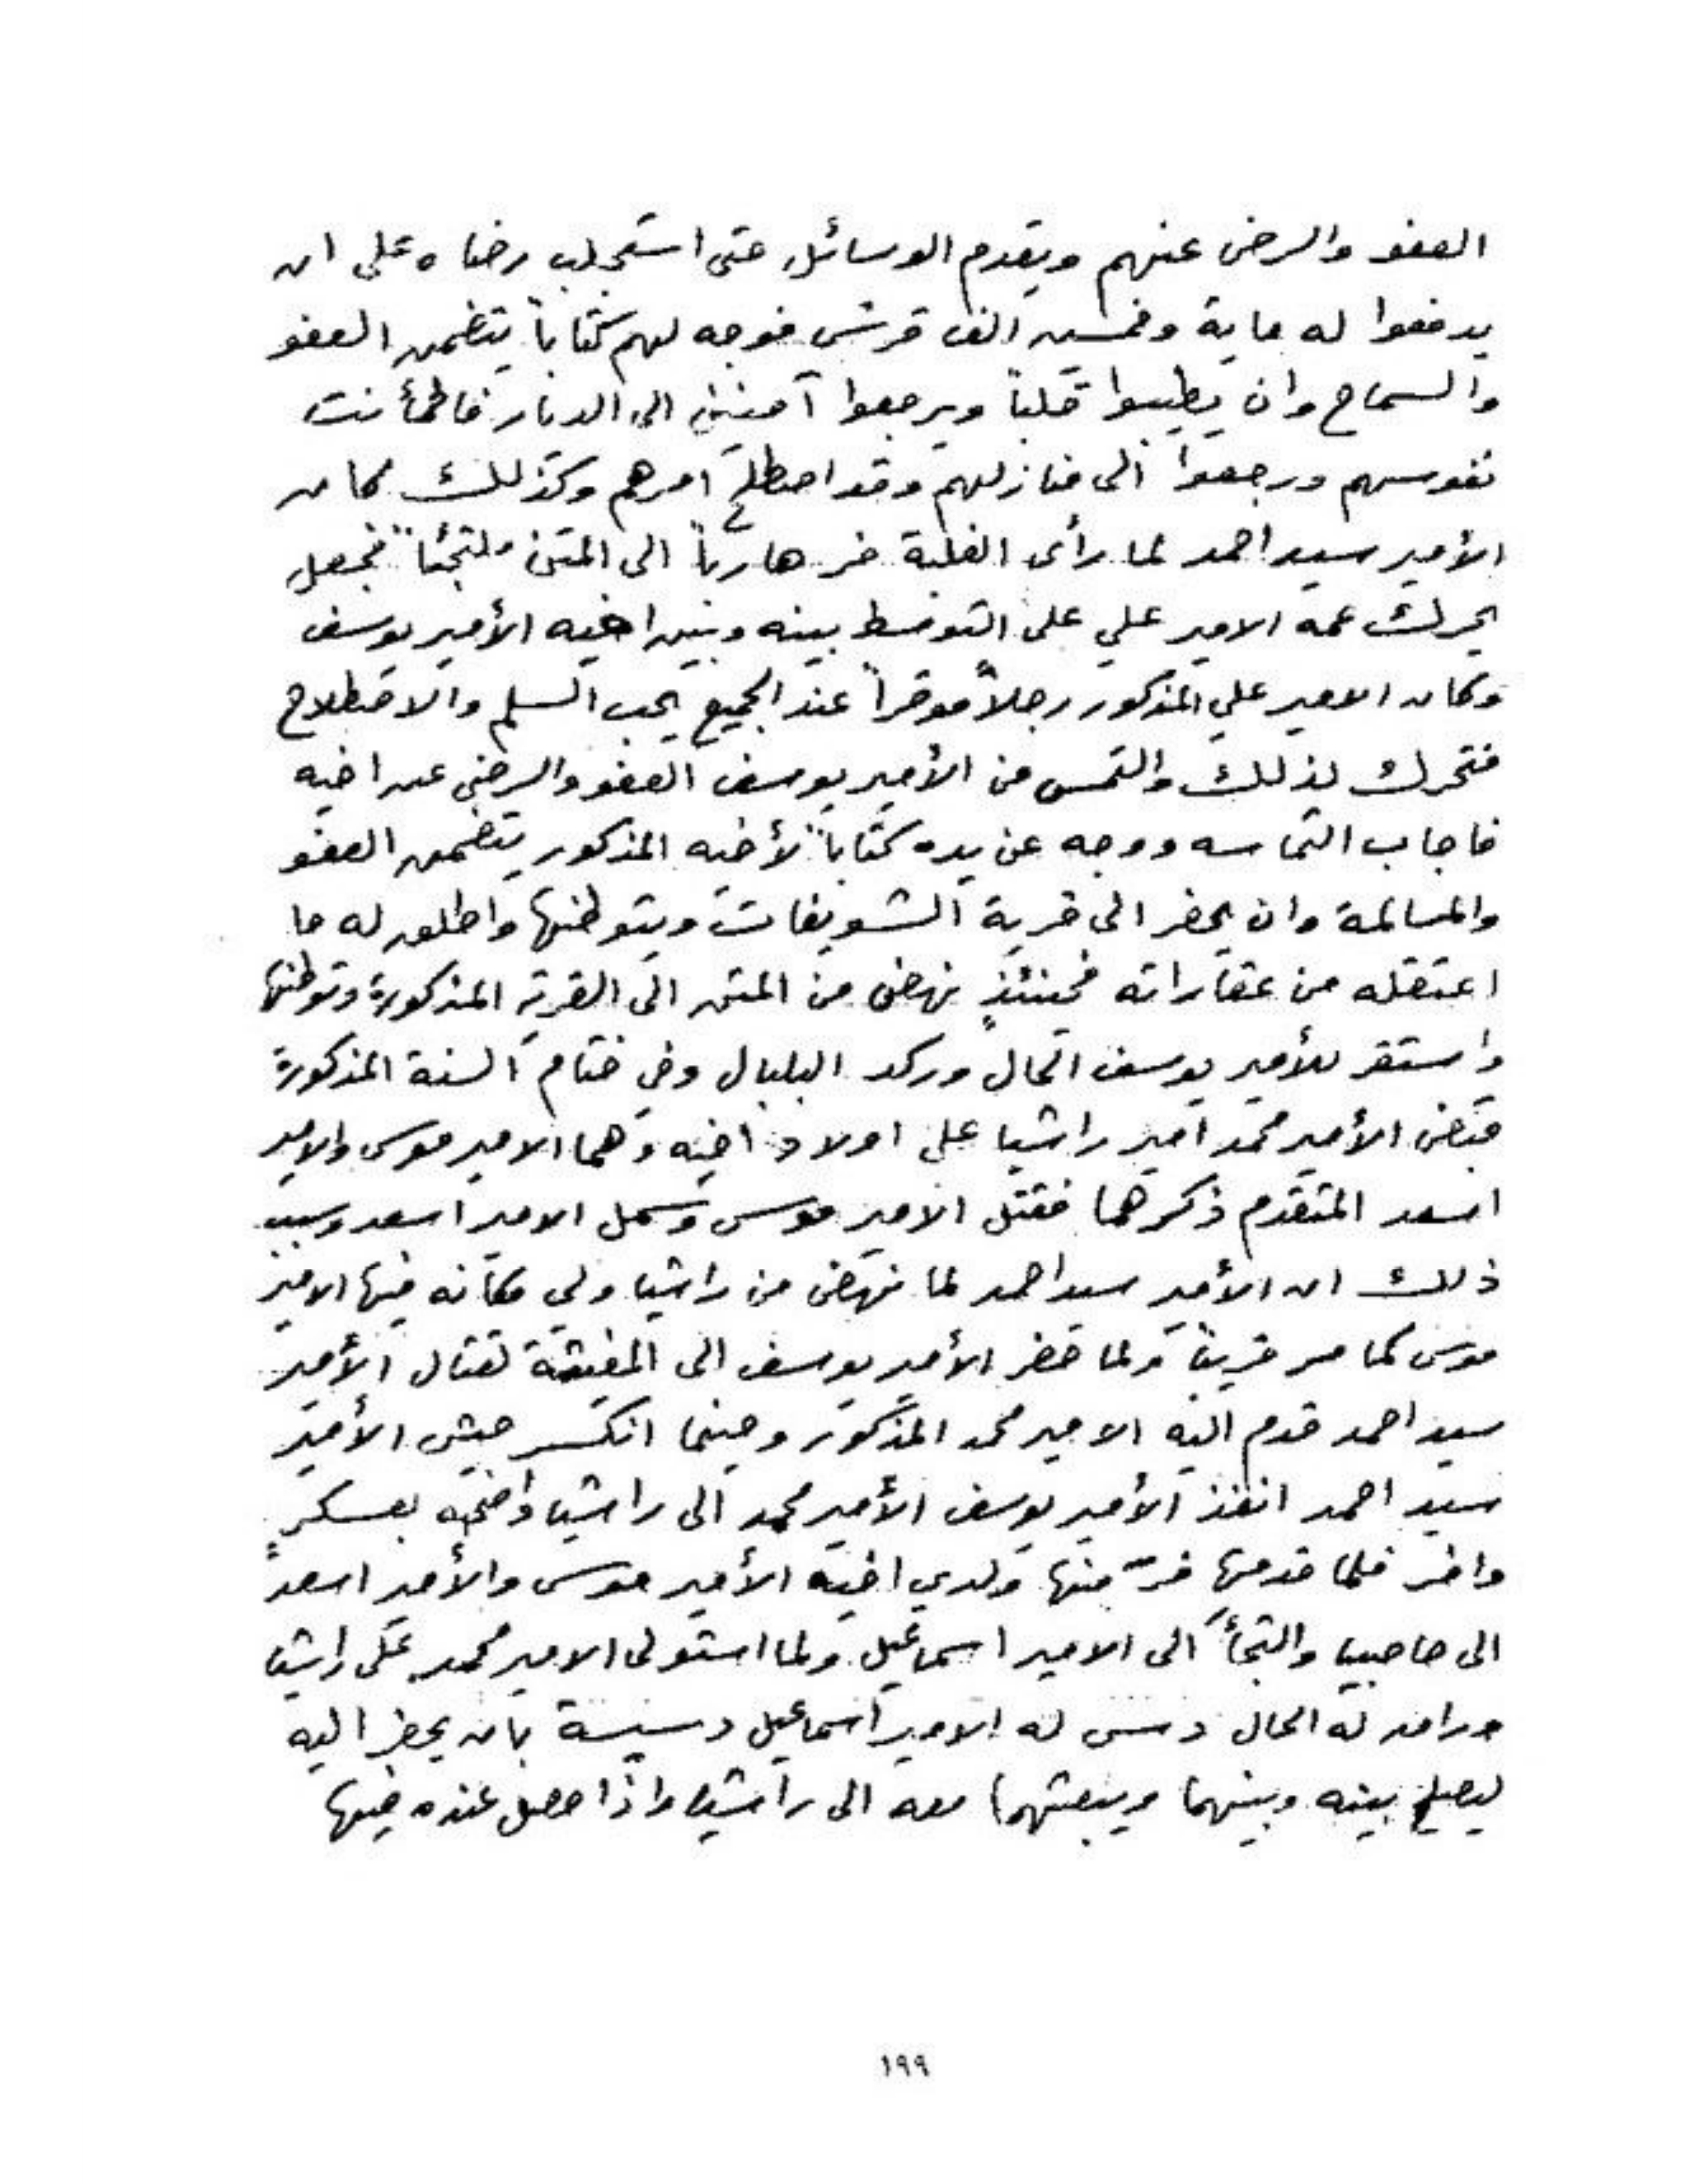 العفو والرضى عنهم ويقدم الوسائل حتى استجلب رضاه على ان
يدفعوا له ماية وخمسين الف قرش فوجه لهم كتاباً يتضمن العفو
والسماح وان يطيبوا قلباً ويرجعوا آمنين الى الديار فاطمأنت
نفوسهم ورجعوا الى منازلهم وقد اصطلح امرهم وكذلك كان
الأمير سيد احمد لما رأى الغلبة فر هارباً الى المتن ملتجئاً فجعل
يحرك عمه الامير علي على التوسط بينه وبين اخيه الأمير يوسف
وكان الامير علي المذكور رجلاً موقراً عند الجميع يحب السلم والاصطلاح
فتحرك لذلك والتمس من الأمير يوسف العفو والرضى عن اخيه
فاجاب التماسه ووجه عن يده كتاباً لأخيه المذكور يتضمن العفو
والمسالمة وان يحضر الى قرية الشويفات ويتوطنها واطلق له ما
اعتقله من عقاراته فحينئذٍ نهض من المتن الى القرية المذكورة وتوطنها
واستقر للأمير يوسف الحال وركد البلبال وفي ختام السنة المذكورة
قبض الأمير محمد امير راشيا على اولاد اخيه وهما الامير موسى والامير
اسعد المتقدم ذكرهما فقتل الامير موسى وسمل الامير اسعد وسبب
ذلك ان الأمير سيد احمد لما نهض من راشيا ولي مكانه فيها الامير
موسى كما مر قريباً ولما حضر الأمير يوسف الى المغيثة لقتال الأمير
سيد احمد قدم اليه الامير محمد المذكور وحينما انكسر جيش الأمير
سيد احمد انفذ الأمير يوسف الأمير محمد الى راشيا واصحبه بعسكرٍ
وافر فلما قدمها فرّ منها ولدي اخيه الأمير موسى والأمير اسعد
الى حاصبيا والتجأ الى الامير اسماعيل ولما استولى الامير محمد على راشيا
وراق له الحال دس له الامير اسماعيل دسيسة بان يحضر اليه
ليصلح بينه وبينهما ويبعثهما معه الى راشيا واذا حصل عنده فيها
١٩٩